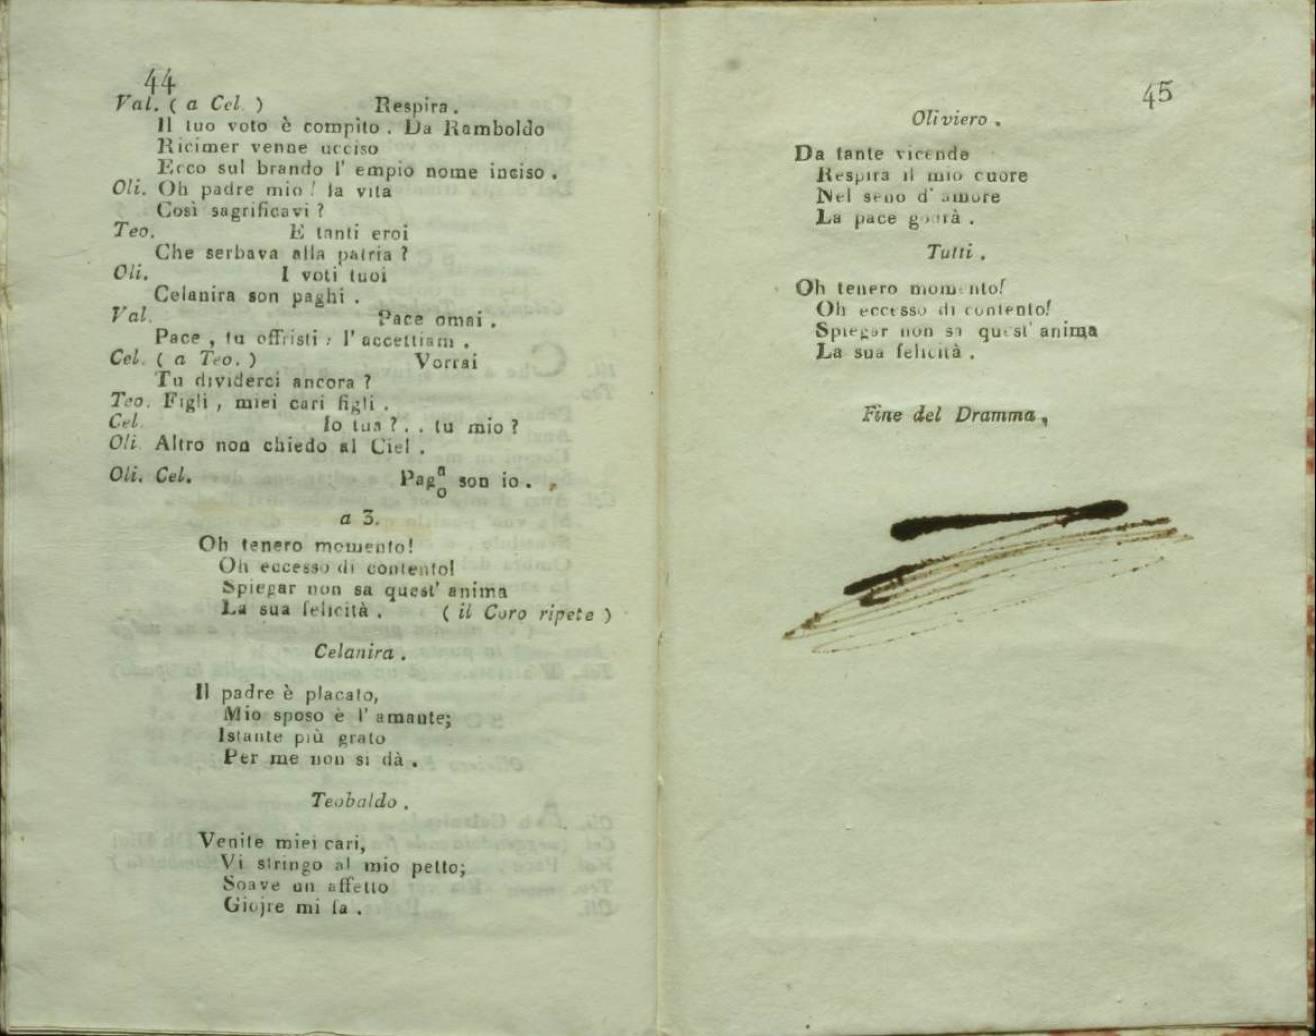 44
Val. ( a Cel. ) Respira .
Il tuo voto è compìto . Da Ramboldo
Ricimer venne ucciso
Ecco sul brando l' empio nome inciso .
Oli. Oh padre mio ! la vita
Così sagrificavi ?
Teo. E tanti eroi
Che serbava alla patria ?
Oli. I voti tuoi
Celanira son paghi .
Val. Pace omai .
Pace , tu offristi : l' accettiam .
Cel. ( a Teo. ) Vorrai
Tu dividerci ancora ?
Teo. Figli , miei cari figli .
Cel. Io tua ? . . tu mio ?
Oli. Altro non chiedo al Ciel .
Oli. Cel. Pag a o son io .
a 3.
Oh tenero momento!
Oh eccesso di contento!
Spiegar non sa quest' anima
La sua felicità . ( il Coro ripete )
Celanira .
Il padre è placato,
Mio sposo è l' amante;
Istante più grato
Per me non si dà .
Teobaldo .
Venite miei cari,
Vi stringo al mio petto;
Soave un affetto
Giojre mi fa .
45
Oliviero .
Da tante vicende
Respira il mio cuore
Nel seno d' amore
La pace godrà .
Tutti .
Oh tenero momento!
Oh eccesso di contento!
Spiegar non sa quest' anima
La sua felicità .
Fine del Dramma ,